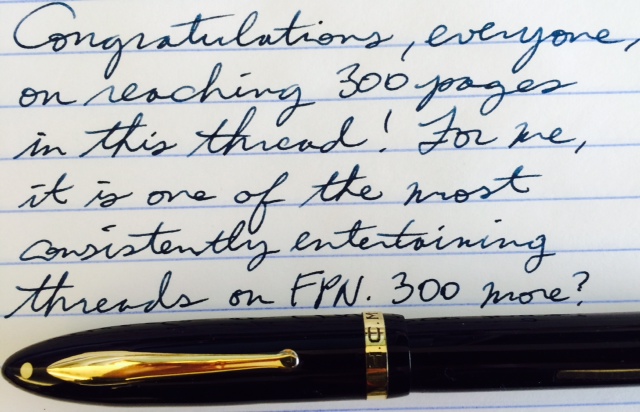 Congratulations, everyone,
on reaching 300 pages
in this thread! For me,
it is one of the most
consistently entertaining
threads on FPN. 300 more?